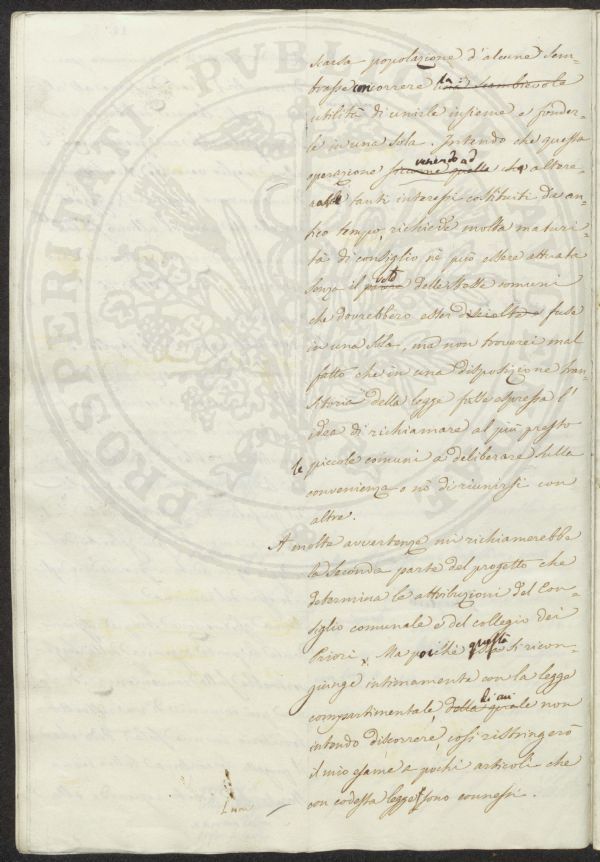 scarsa popolazione d'alcune sem-
brasse concorrere la una scambievole
utilità di unirle insieme e fonder-
le in una sola. Intendo che questa
operazione venendo ad siccome quella che altere-
rebbe tanti interessi costituiti da an-
tico tempo, richiede molta maturi-
tà di consiglio nè può essere attuata
senza il voto delle stesse comuni
che dovrebbero esser disciolte e fuse
in una sola, ma non troverei mal
fatto che in una disposizione tran-
sitoria della legge fosse espressa l'
idea di richiamare al più presto
le piccole comuni a deliberare sulla
convenienza o nò di riunirsi con
altre.
A molte avvertenze mi richiamerebbe
la seconda parte del progetto che
determina le attribuzioni del Con-
siglio comunale e del collegio dei
Priori. Ma poiché questa si ricon-
giunge intimamente con la legge
compartimentale, di cui della quale non
intendo discorrere, così ristringerò
il mio esame a pochi articoli che
con codesta legge sono connessi.
PROSPERITATI PVBLICAE